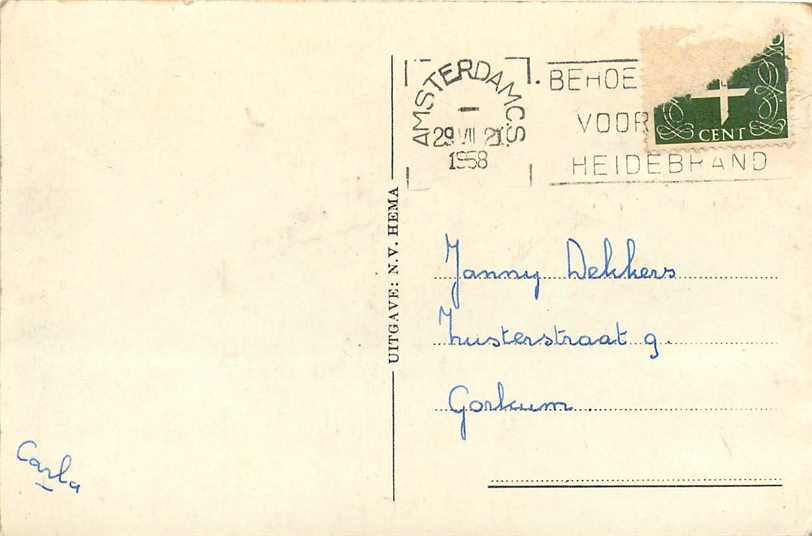 AMSTERDAM C.S.
29 VII 21
1958
BEHOE
VOOR
HEIDEBRAND
CENT
UITGAVE: N.V. HEMA
Janny Dekkers
Zusterstraat 9
Gorkum
Carla